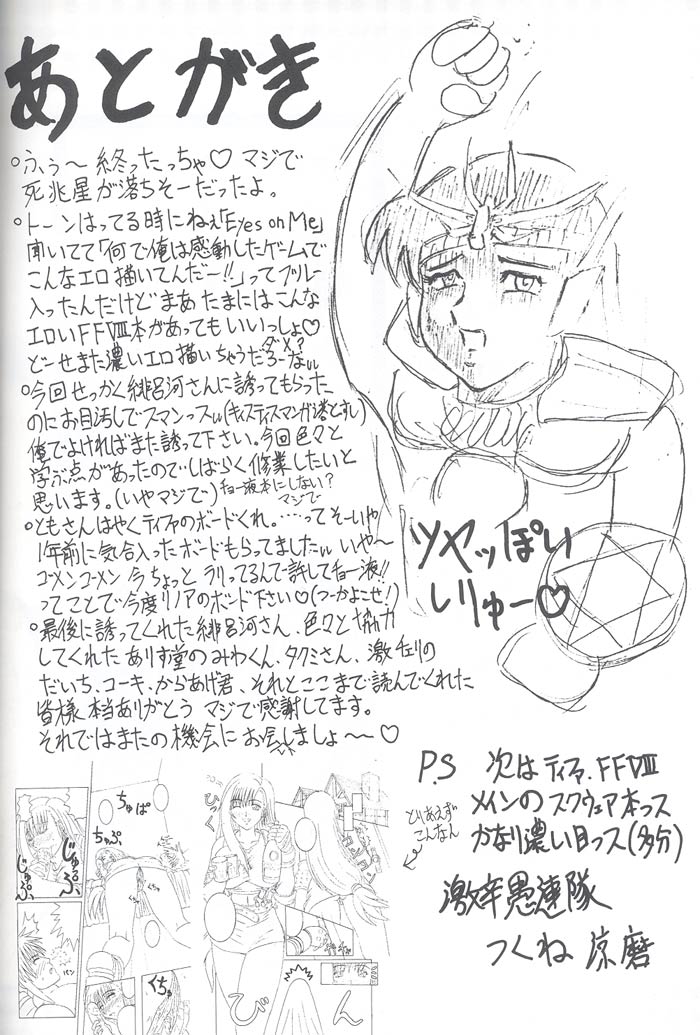 あとがき
○ふぅ〜 終ったっちゃ♡ マジで
死兆星が落ちそーだったよ。
○トーンはってる時にねぇ「Eyes on Me」
聞いてて「何で俺は感動したゲームで
こんなエロ描いてんだー!!」ってブルー
入ったんだけどまあ たまにはこんな
エロいFFⅧ本があってもいいっしょ♡
どーせまた濃いエロ描いちゃうだろーな
ダメ?
○今回せっかく緋呂河さんに誘ってもらった
のにお目汚しでスマンっス(キスティスマンガ落とすし)
俺でよければまた誘って下さい。今回色々と
学ぶ点があったのでしばらく修業したいと
思います。(いやマジで)
チョー液本にしない?
マジで
○ともさんはやくティファのボードくれ。……ってそーいや
1年前に気合入ったボードもらってましたw いや〜
ゴメンゴメン 今ちょっと ラリってるんで許してチョー液!!
ってことで今度リノアのボード下さい♡(つーかよこせ!)
○最後に誘ってくれた緋呂河さん、色々と協力
してくれた ありす堂の みわくん、タクミさん、激チェリの
だいち、コーキ、からあげ君、それとここまで読んでくれた
皆様 本当ありがとう マジで感謝してます。
それではまたの機会に お会いしましょ〜♡
ツヤッぽい
しりゅー♡
P.S 次は ティファ、FFⅧ
メインの スクウェア本っス
かなり濃い目っス(多分)
とりあえず
こんなん
激辛愚連隊
つくね 涼磨
じゅるぷ
じゅぷ
ちゅぱ
ちゅぷ
ひっく
ガン
パン
くちゅ
びん